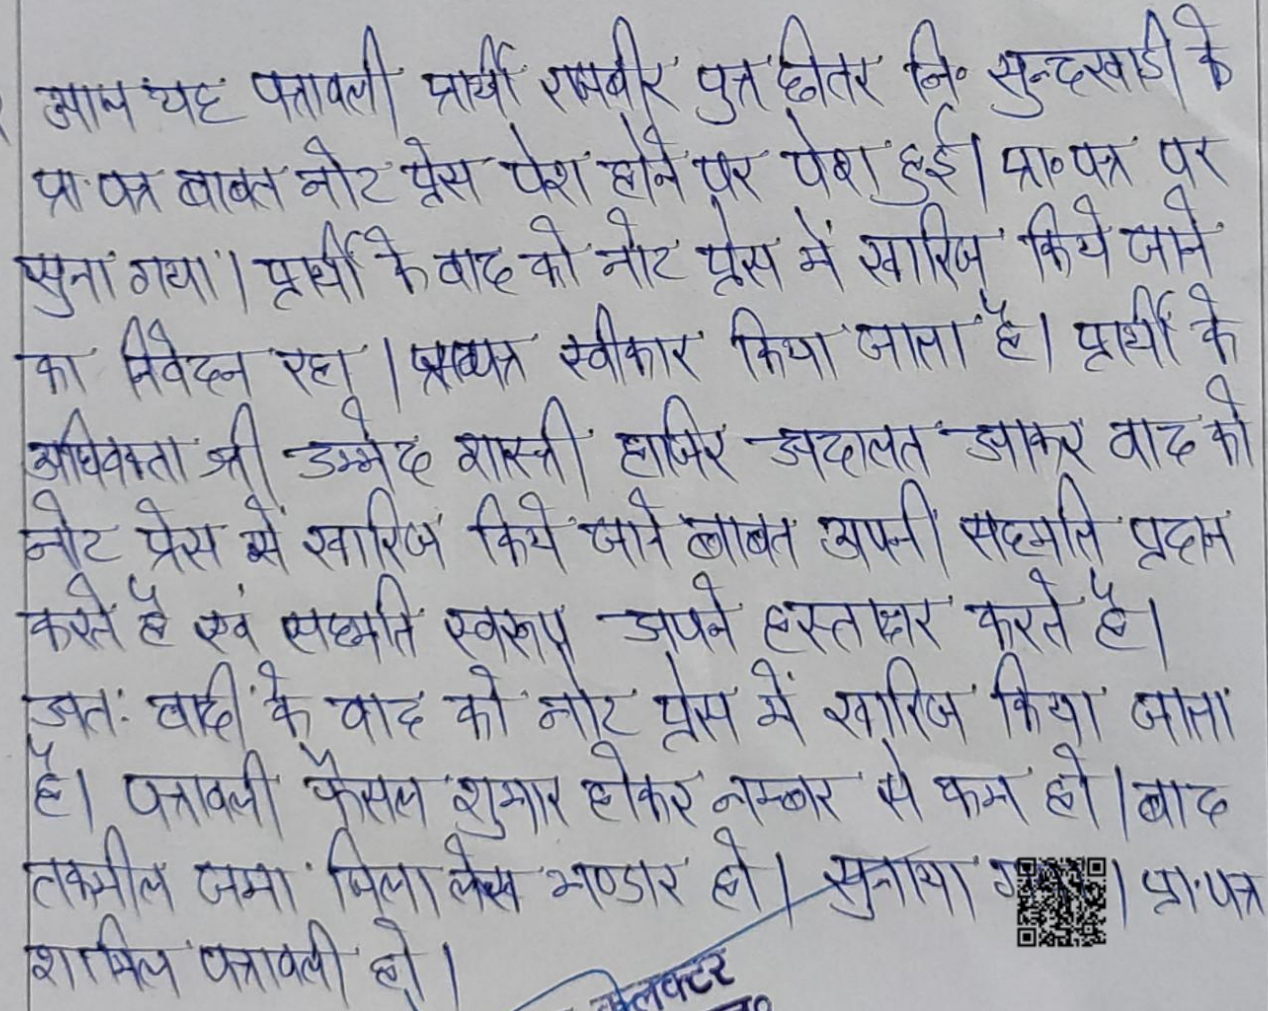 आज यह पत्रावली प्रार्थी रामबीर पुत्र छीतर नि॰ सुन्दरवाडी के
प्रा.पत्र बाबत नोट प्रेस पेश होने पर पेश हुई। प्रा॰पत्र पर
सुना गया। प्रार्थी के वाद को नोट प्रेस में खारिज किये जाने
का निवेदन रहा। स्वीकार किया जाता है। प्रार्थी के
अधिवक्ता श्री उम्मेद शास्त्री हाजिर अदालत आकर वाद को
नोट प्रेस में खारिज किये जाने बाबत अपनी सहमति प्रदान
करते है एवं सहमति स्वरूप अपने हस्ताक्षर करते है।
अतः वादी के वाद को नोट प्रेस में खारिज किया जाता
है। पत्रावली फैसल शुमार होकर नम्बर से कम हो। बाद
तकमील जमा जिला लेख भण्डार हो। सुनाया। प्रा.पत्र
शामिल पत्रावली हो।
कलक्टर